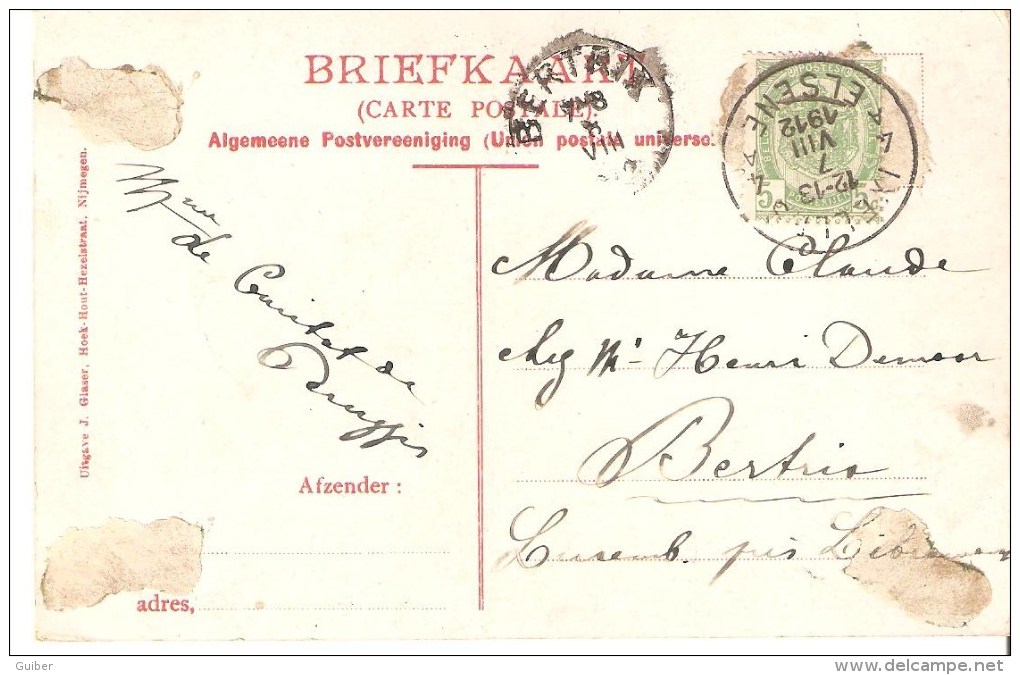 BRIEFKAART
(CARTE POSTALE).
Algemeene Postvereeniging (Union postale universe
BERTRIX
8
VIII
POSTES
5 5
IXELLES
12-13
7
VIII
1912
ELSENE
Uitgave J. Glaser, Hoek-Hout-Hezelstraat, Nijmegen.
Mme
de
de
Madame Claude
chez Mr Henri Demoor
Bertrix
Luxemb. près Libramon
Afzender :
adres,
Guiber
www.delcampe.net